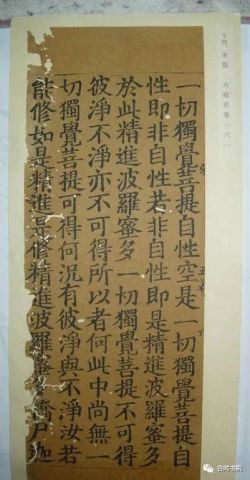 十四、宋版 大般若卷一六一
一切獨覺菩提自性空是一切獨覺菩提自
性即非自性若非自性即是精進波羅蜜多
於此精進波羅蜜多一切獨覺菩提不可得
彼淨不淨亦不可得所以者何此中尚無一
切獨覺菩提可得何況有彼淨與不淨汝若
能修如是精進是修精進波羅蜜多憍尸迦
合时书院